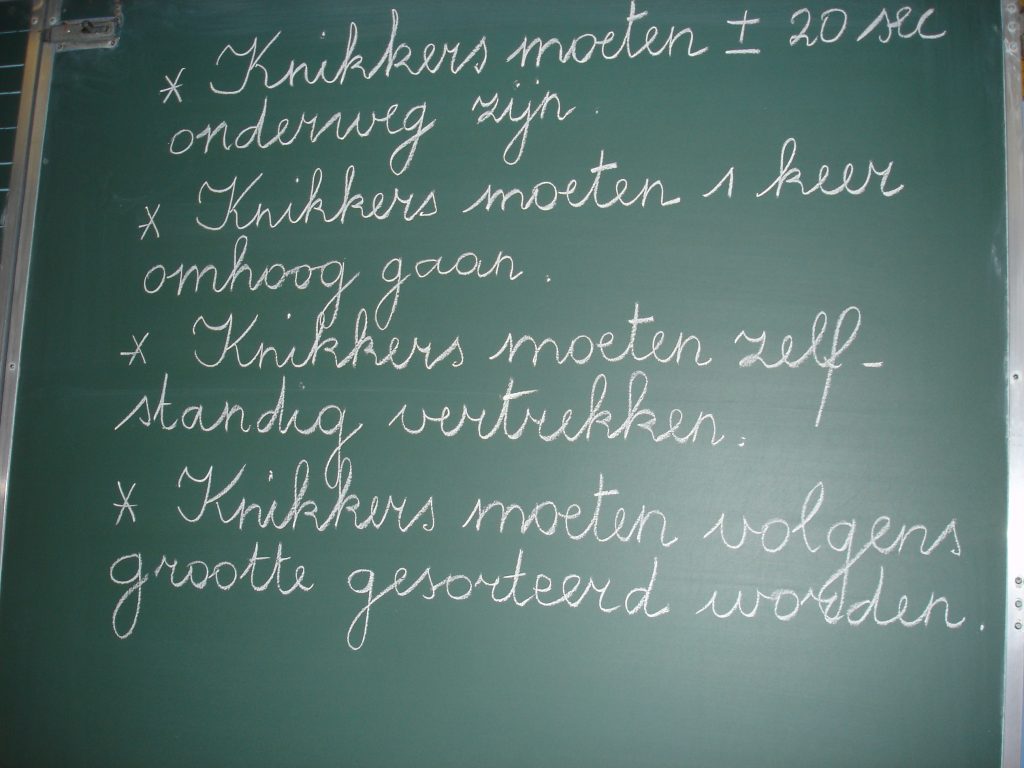 * Knikkers moeten ± 20 sec
onderweg zijn.
* Knikkers moeten 1 keer
omhoog gaan.
* Knikkers moeten zelf-
standig vertrekken.
* Knikkers moeten volgens
grootte gesorteerd worden.